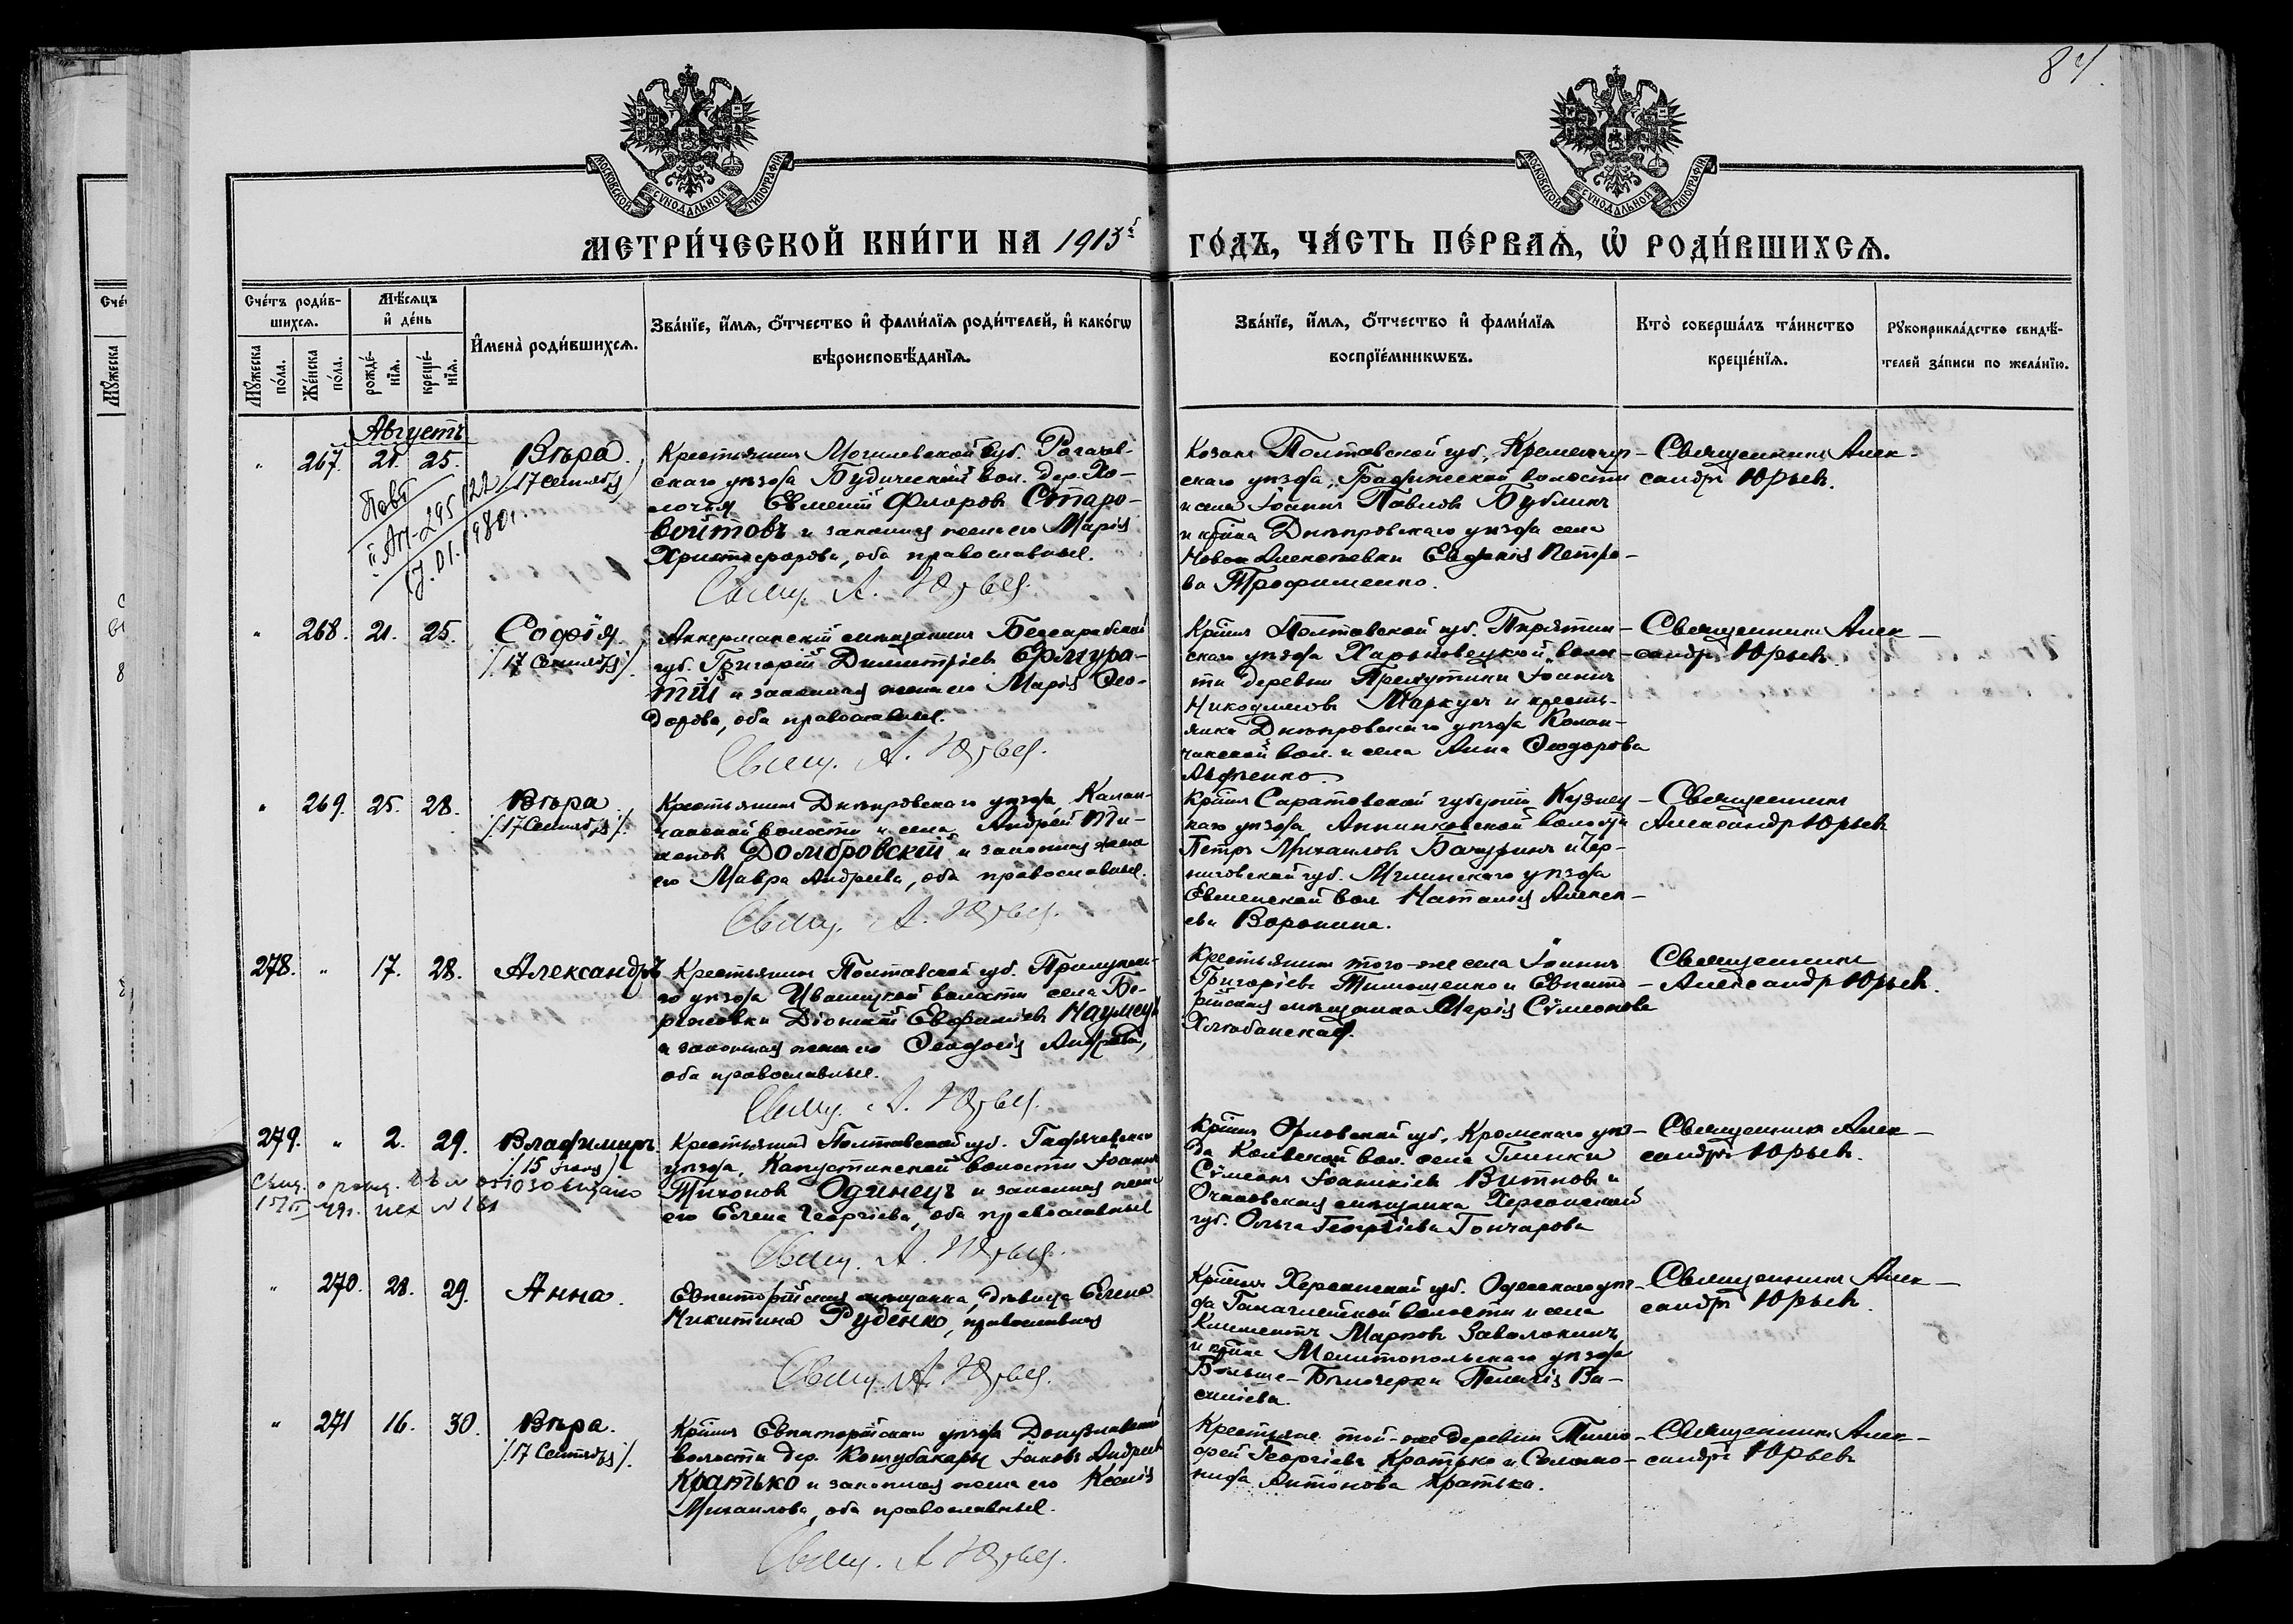 84.
МОСКОВСКОЙ СѴНОДАЛЬНОЙ ТИПОГРАФІИ
МОСКОВСКОЙ СѴНОДАЛЬНОЙ ТИПОГРАФІИ
МЕТРИ́ЧЕСКОЙ КНИ́ГИ НА 1913й ГО́ДЪ, ЧА́СТЬ ПЕ́РВАѦ, Ѡ҆ РОДИ́ВШИХСѦ.
Сче́тъ роди́в-
шихсѧ.
Мꙋ́жеска
по́ла.
Же́нска
по́ла.
Мѣ́сѧцъ
и҆ де́нь
рожде́-
нїѧ.
креще́-
нїѧ.
И҆мена̀ роди́вшихсѧ.
Зва́нїе, и҆́мѧ, ѻ҆́тчество и҆ фами́лїѧ роди́телей, и҆ како́гѡ
вѣроисповѣ́данїѧ.
Зва́нїе, и҆́мѧ, ѻ҆́тчество и҆ фами́лїѧ
воспрїе́мникѡвъ.
Кто̀ соверша́лъ та́инство
креще́нїѧ.
Рꙋкоприкла́дство свидѣ́-
телей за́писи по жела́нїю.
Августъ
" 267. 21. 25. Вѣра.
/17 Сентября/
Крестьянинъ Могилевской губ. Рогачев-
скаго уѣзда Будической вол. дер. Хо-
лочья Евментій Флоровъ Старо-
войтовъ и законная жена его Марія
Христофорова, оба православные.
Свящ. А. Юрьев.
Козакъ Полтавской губ. Кременчуг-
скаго уѣзда, Градижской волости
и села Іоаннъ Павловъ Бублик
и кр-нка Днѣпровскаго уѣзда села
Новой Алексѣевки Евфимія Петро-
ва Трофименко.
Священникъ Алек-
сандръ Юрьевъ.
" 268. 21. 25. Софія.
/17 Сентября/.
Аккерманскій мѣщанинъ Бессарабской
губ. Григорій Димитріевъ Ермура-
тій и законная жена его Марія Ѳео-
дорова, оба православные.
Свящ. А. Юрьев.
Кр-нинъ Полтавской губ. Пирятин-
скаго уѣзда Харьковецкой волос-
ти деревни Іоаннъ
Никодимовъ Маркуся и кресть-
янка Днѣпровскаго уѣзда Калан-
чакской вол. и села Анна Ѳеодорова
Священникъ Алек-
сандръ Юрьевъ.
" 269. 25. 28. Вѣра
/17 Сентября/.
Крестьянинъ Днѣпровскаго уѣзда, Калан-
чакской волости и села Андрей Ти-
Домбровскій и законная жена
его Мавра Андреева, оба православные.
Свящ. А. Юрьев.
Кр-нинъ Саратовской губерніи Кузнец-
каго уѣзда, Аннинковской волости
Петръ Михаиловъ Бачуринъ и Чер-
ниговской губ. Мглинскаго уѣзда
вол Наталія Алексѣ-
ева Воронина.
Священникъ
Александръ Юрьевъ
278. " 17. 28. Александръ
Крестьянинъ Полтавской губ. Прилукска-
го уѣзда Иваницкой волости села Бе-
резовки Діонисій Евфиміевъ Наумецъ
и законная жена его Ѳеодосія Андреева,
оба православные.
Свящ. А. Юрьев.
Крестьянинъ того-же села Іоаннъ
Григоріевъ Тимошенко и Евпато-
рійская мѣщанка Марія Сѵмеонова
Священникъ
Александръ Юрьевъ.
279. " 2. 29. Владимиръ
/15 Іюля/
Крестьянинъ Полтавской губ. Гадячскаго
уѣзда, Капустинской волости Іоаннъ
Тихоновъ Одинецъ и законная жена
его Елена Георгіева, оба православные
Свящ. А. Юрьев.
Кр-нинъ Орловской губ. Кромскаго уѣз-
да вол. села Глинки
Сѵмеонъ Іоанникіевъ Витновъ и
Очаковская мѣщанка Херсонской
губ. Ольга Георгіева Гончарова
Священникъ Алек-
сандръ Юрьевъ.
" 270. 28. 29. Анна.
Евпаторійская мѣщанка, дѣвица Елена
Никитина Руденко, православная
Свящ. А. Юрьев.
Кр-нинъ Херсонской губ. Одесскаго уѣз-
да волости и села
Климентъ Марковъ Заволокинъ
и кр-нка Мелитопольскаго уѣзда
Больше-Бѣлозерки Пелагія Ва-
силіева.
Священникъ Алек-
сандръ Юрьевъ.
" 271 16. 30. Вѣра.
/17 Сентября/.
Кр-нинъ Евпаторійскаго уѣзда Донузлавской
волости дер. Іаковъ Андреевъ
Кратько и законная жена его Ксенія
Михаилова, оба православные.
Свящ. А. Юрьев.
Крестьяне той-же деревни Тимо-
фей Георгіевъ Кратько и Соломо-
нида Антонова Кратько.
Священникъ Алек-
сандръ Юрьевъ